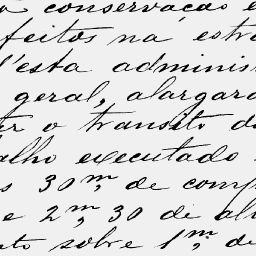 a conservação e
feitos na estra
d'esta adminis
geral, alargara
ter o transito da
alho executado
s 30m, de comp
e 2m, 30 de al
nto sobre 1m, de